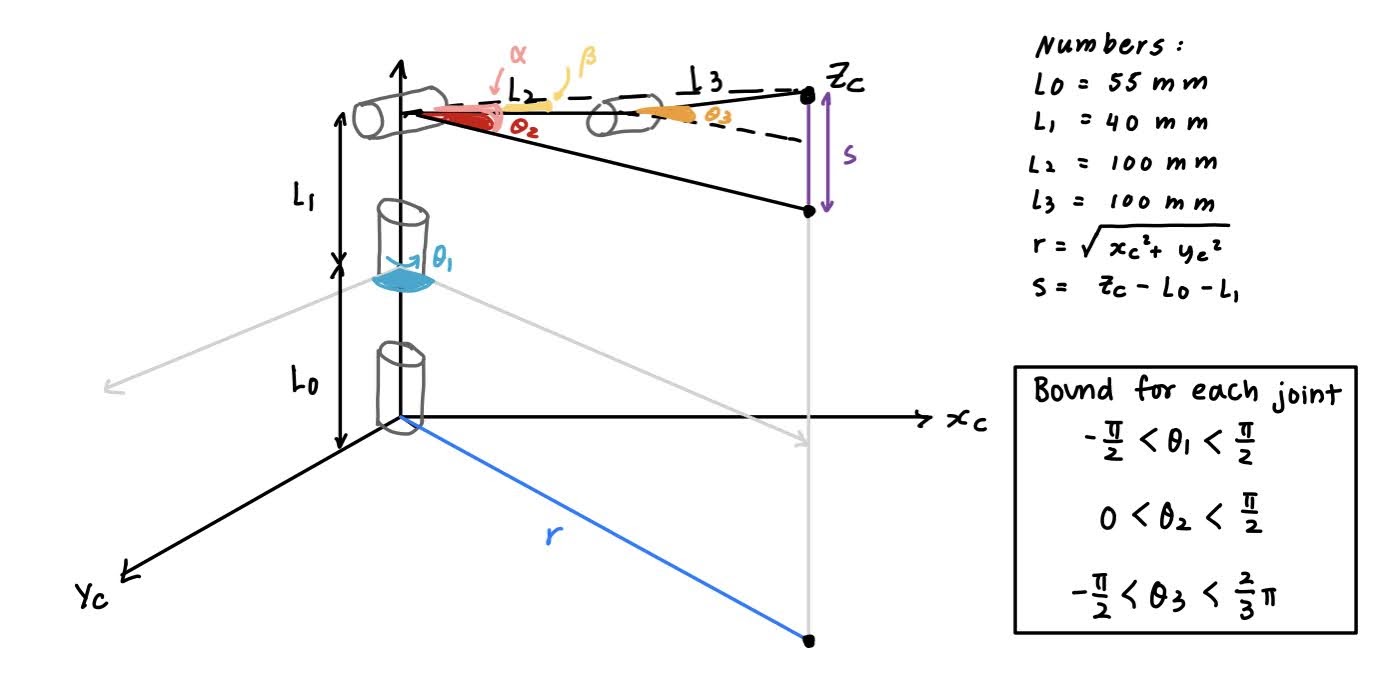 α
β
L2
L3
Zc
θ2
θ3
s
L1
θ1
L0
xc
r
Yc
Numbers:
L0 = 55 mm
L1 = 40 mm
L2 = 100 mm
L3 = 100 mm
r = √xc²+ yc²
s = Zc - L0 - L1
Bound for each joint
-π/2 < θ1 < π/2
0 < θ2 < π/2
-π/2 < θ3 < 2/3 π